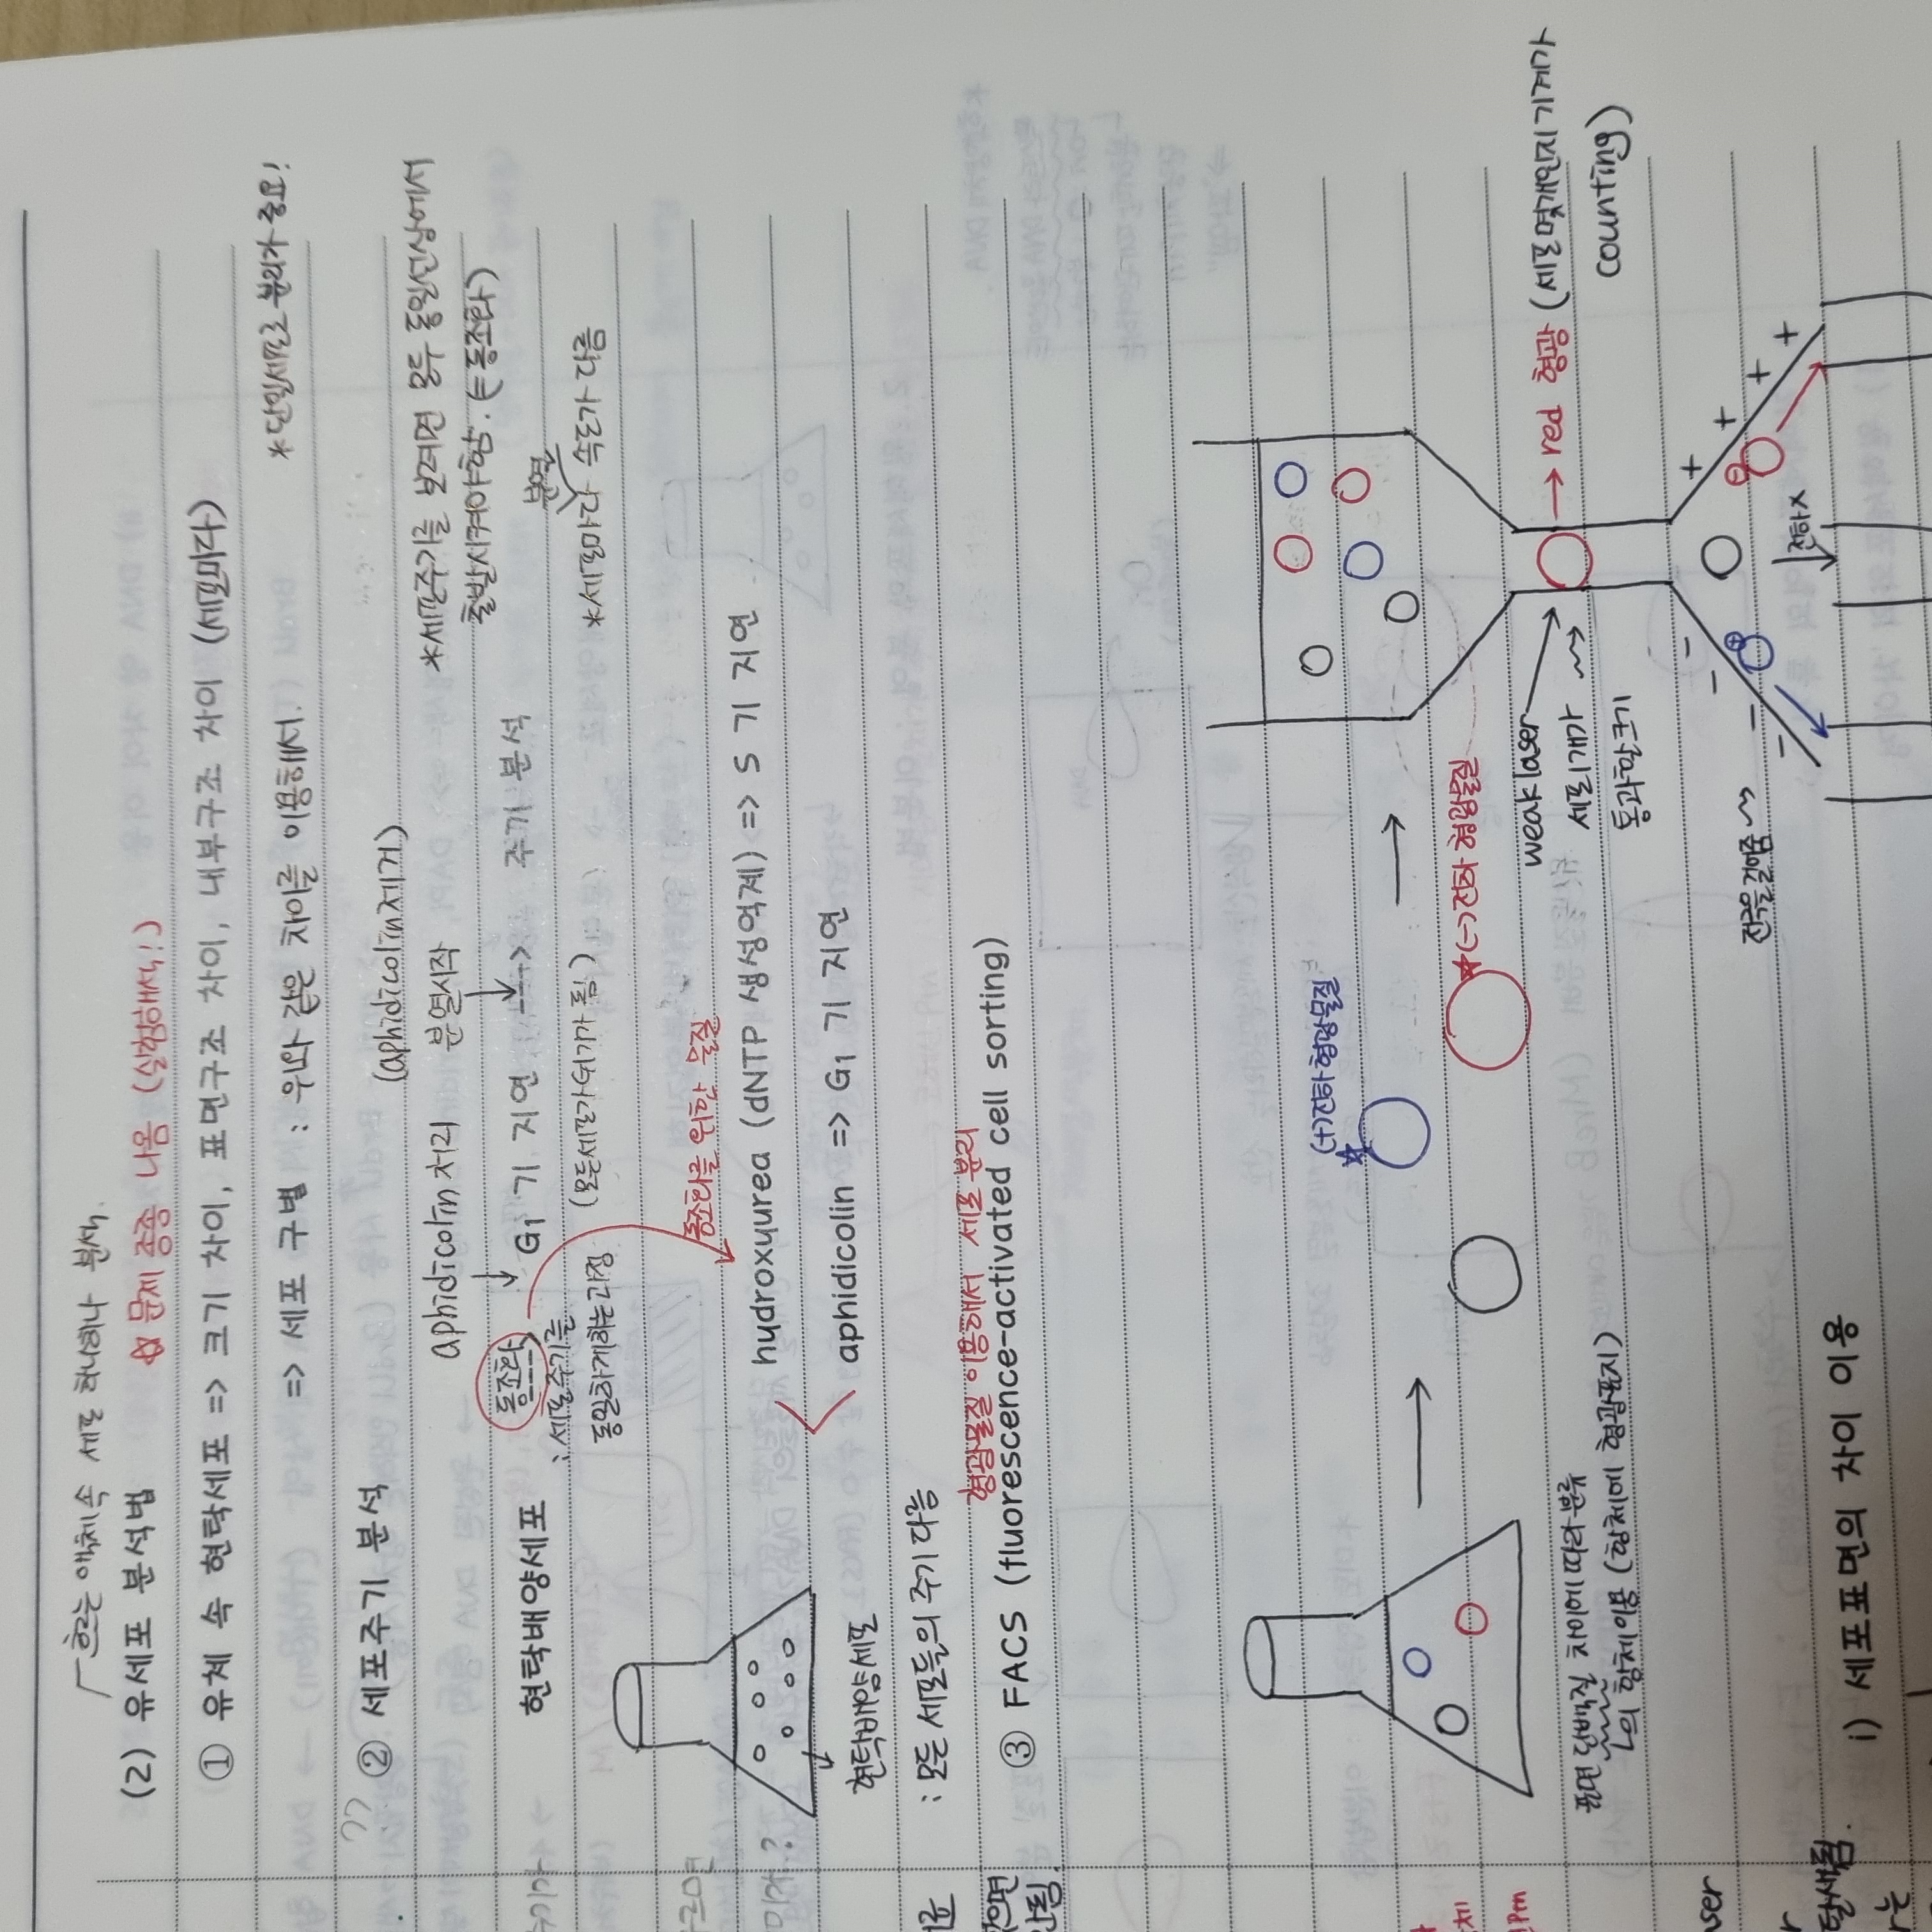 흐르는 액체 속 세포 하나하나 분석.
(2) 유세포 분석법 ☆ 문제 종종 나옴 (실험해석!)
① 유체 속 현탁세포 => 크기 차이, 표면구조 차이, 내부구조 차이 (세포마다)
=> 세포 구별 : 위와 같은 차이를 이용해서. *단일세포 분리가 중요!
② 세포주기 분석
(aphidicolin제거)
aphidicolin 처리 분열시작
*세포주기를 보려면 모두 동일선상에서
출발시켜야함. (=동조화)
현탁배양세포
동조화
G1 기 지연 ---> 주기 분석
: 세포주기를
동일하게하는과정
(모든세포가G1기가 됨)
*세포마다 속도가 다름
동조화를 위한 물질
hydroxyurea (dNTP 생성억제) => S 기 지연
aphidicolin => G1 기 지연
현탁배양세포
: 모든 세포들의 주기 다름
형광물질 이용해서 세포 분리
③ FACS (fluorescence-activated cell sorting)
(+)전하형광물질
*(-)전하 형광물질
weak laser
→ red 형광 (세포몇개인지 기계가
counting)
세포1개가
통과할크기
전하x
+ + + +
- - - -
표면 단백질 차이에 따라 분류
항체이용 (항체에 형광표지)
i) 세포표면의 차이 이용